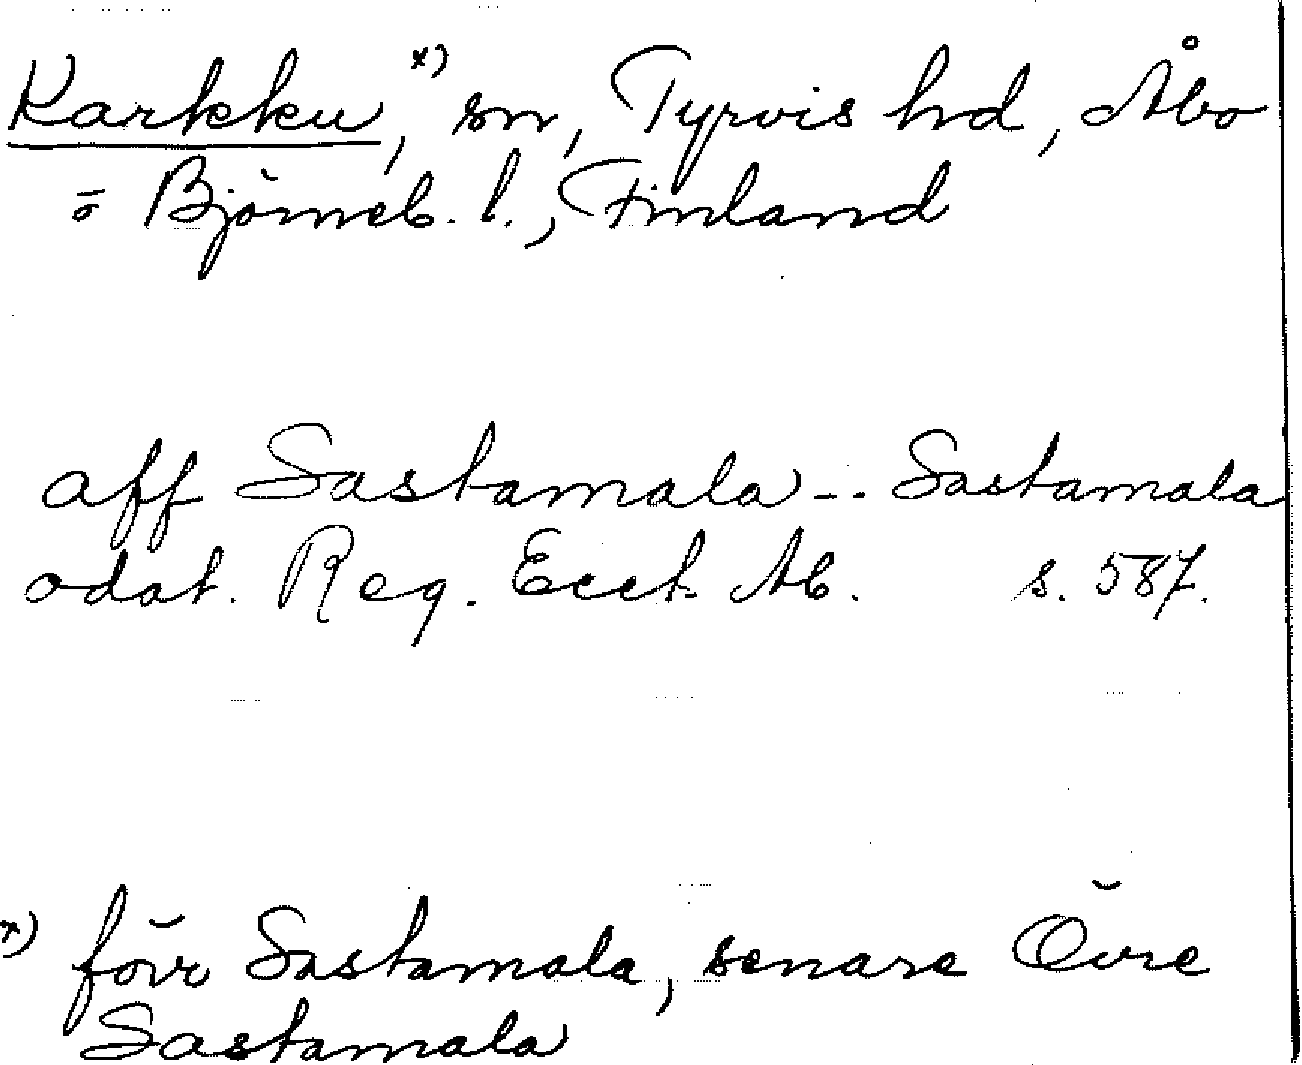 Karkku,x) sn, Tyrvis hd, Åbo
o Björneb. l., Finland
aff Sastamala -. Sastamala
odat. Reg. Eccl. Ab. s. 587.
x) förr Sastamala, senare Övre
Sastamala